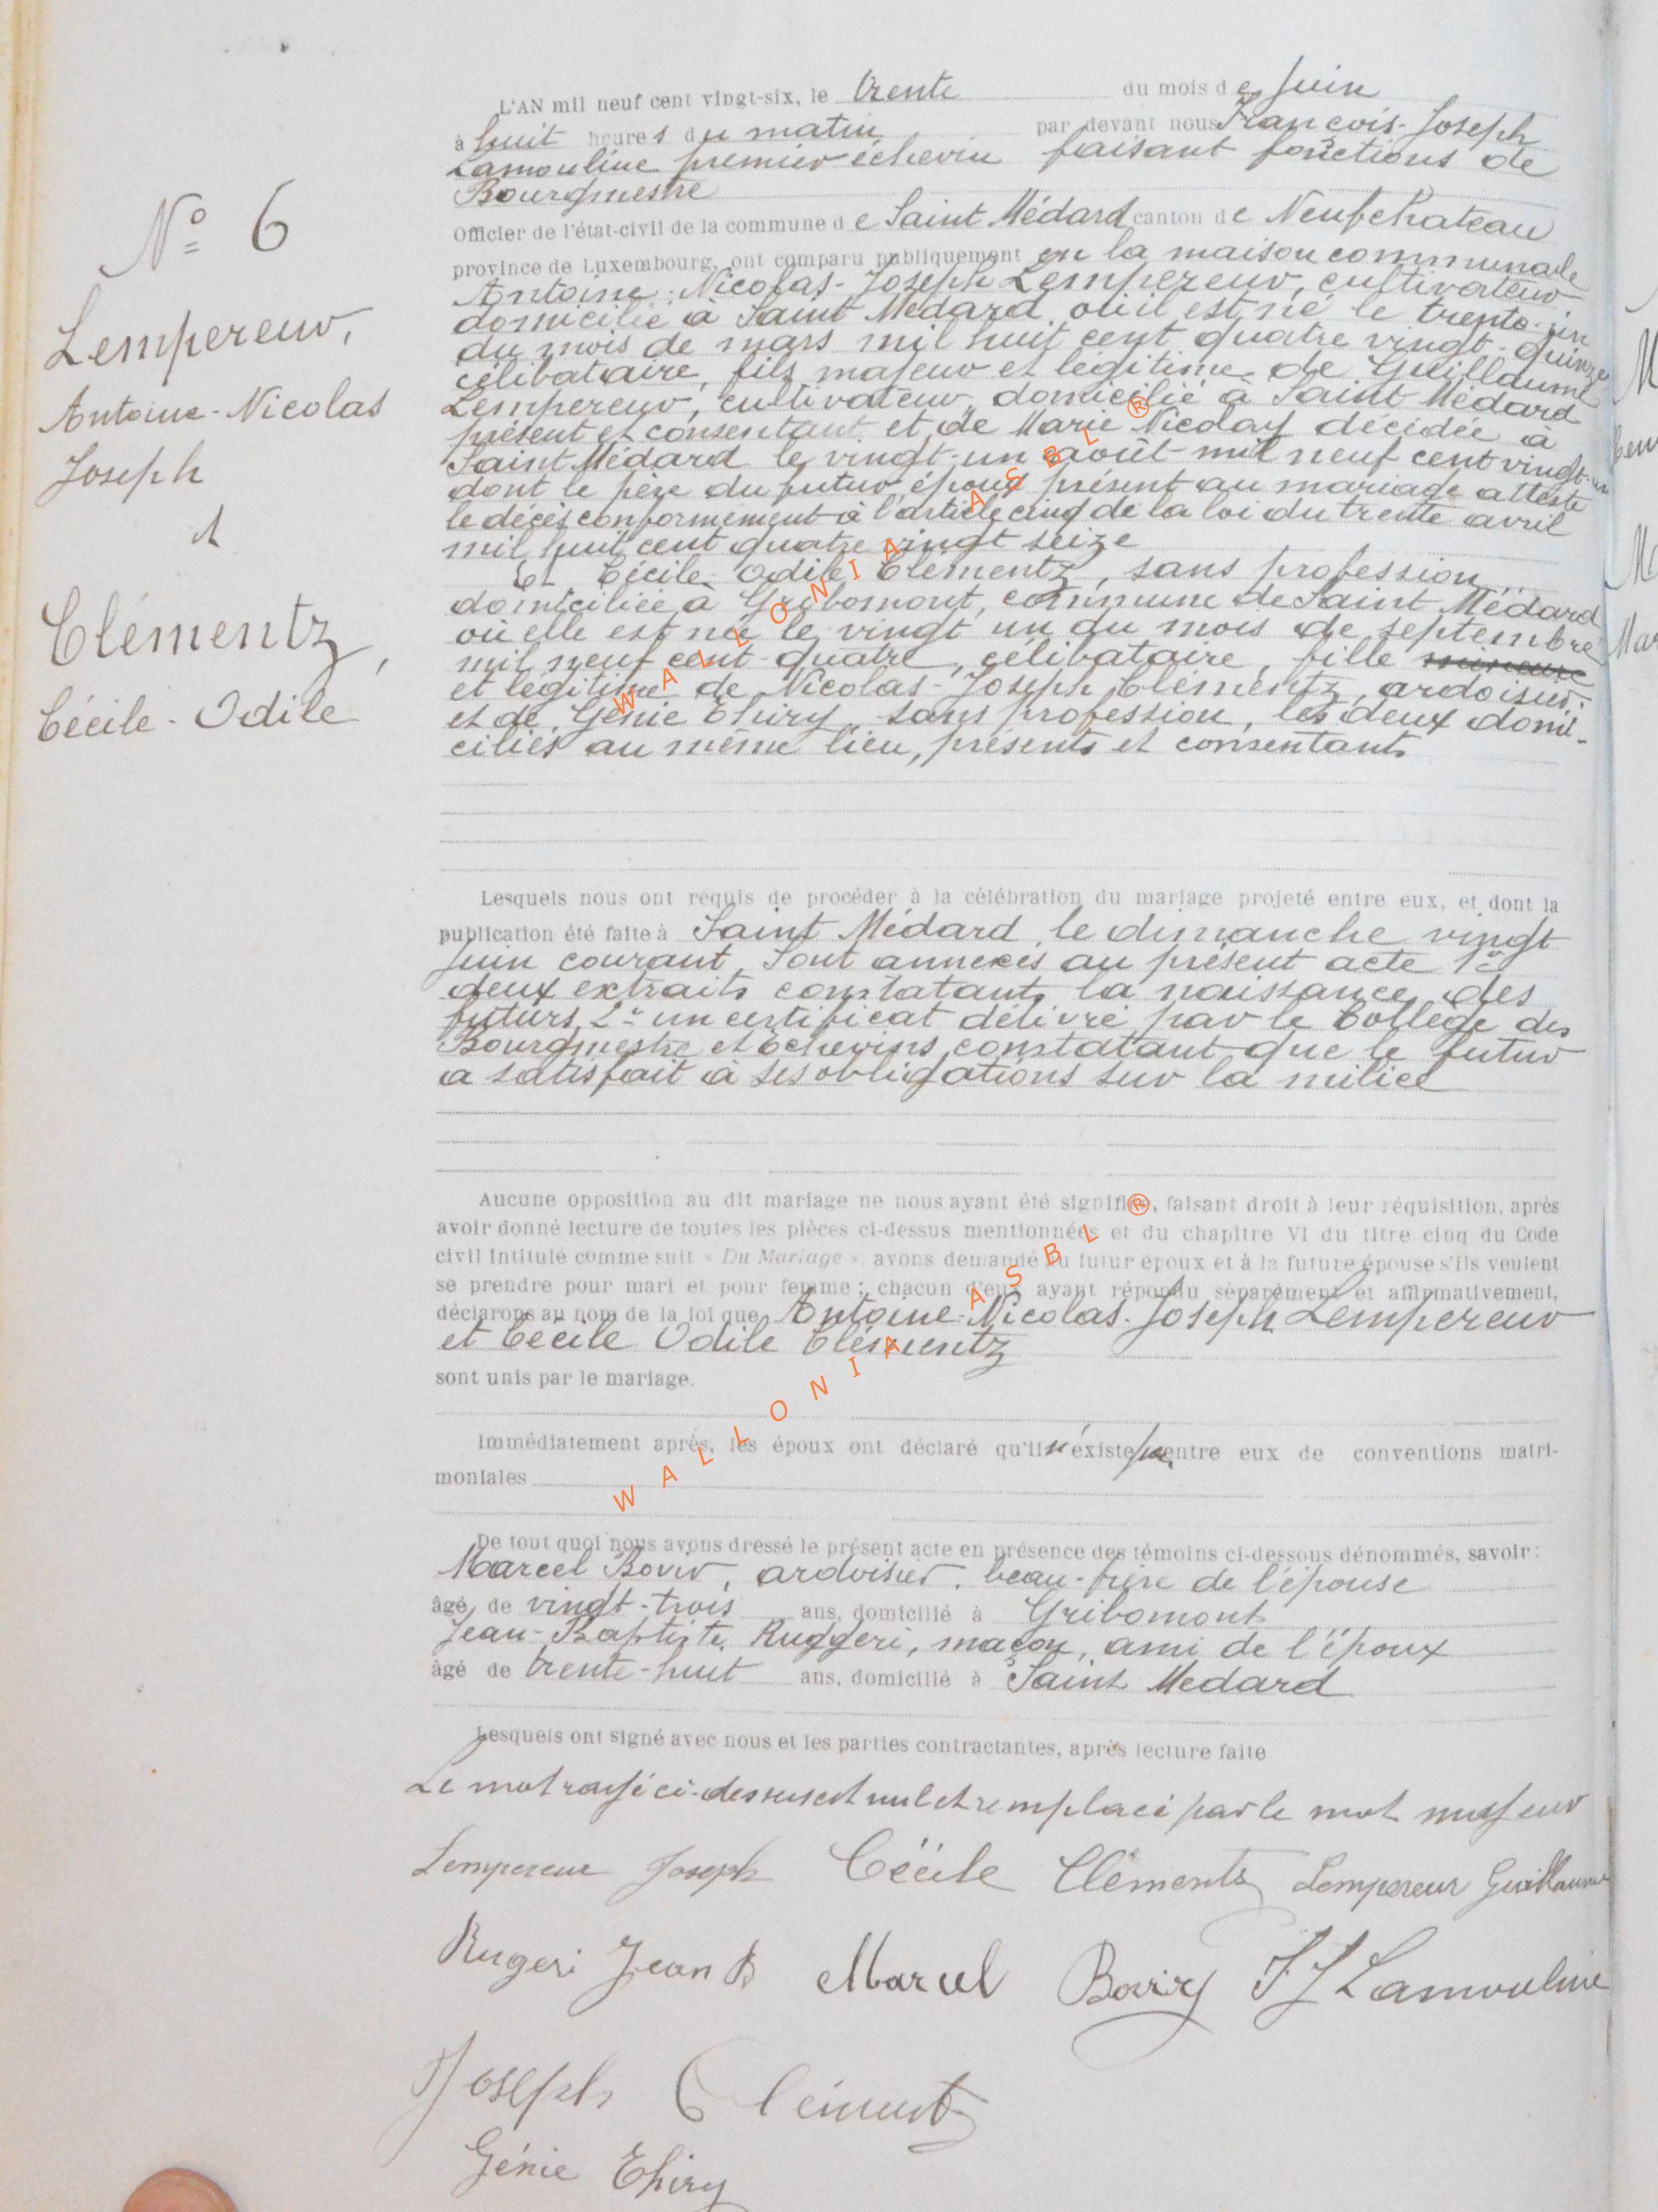 N° 6
Lempereur,
Antoine-Nicolas
Joseph
et
Clémentz,
Cécile-Odile
L'AN mil neuf cent vingt-six, le trente du mois de Juin
à huit heures du matin par devant nous François-Joseph
Lamouline premier échevin faisant fonctions de
Bourgmestre
Officier de l'état-civil de la commune de Saint Médard canton de Neufchateau
province de Luxembourg, ont comparu publiquement en la maison communale
Antoine-Nicolas-Joseph Lempereur, cultivateur
domicilié à Saint Médard où il est né le trente-un
du mois de mars mil huit cent quatre vingt-quinze
célibataire, fils majeur et légitime de Guillaume
Lempereur, cultivateur, domicilié à Saint Médard
présent et consentant et de Marie Nicolay décédée à
Saint Médard le vingt-un août mil neuf cent vingt-un
dont le père du futur époux présent au mariage atteste
le décès conformément à l'article cinq de la loi du trente avril
mil huit cent quatre vingt seize
Et Cécile-Odile Clémentz, sans profession
domiciliée à Gribomont, commune de Saint Médard
où elle est née le vingt un du mois de septembre
mil neuf cent-quatre, célibataire, fille mineure
et légitime de Nicolas-Joseph Clémentz, ardoisier
et de Génie Thiry, sans profession, les deux domi-
ciliés au même lieu, présents et consentants
Lesquels nous ont requis de procéder à la célébration du mariage projeté entre eux, et dont la
publication été faite à Saint Médard, le dimanche vingt
Juin courant. Sont annexés au présent acte 1°
deux extraits constatant la naissance des
futurs, 2° un certificat délivré par le Collège des
Bourgmestre et Echevins constatant que le futur
a satisfait à ses obligations sur la milice
Aucune opposition au dit mariage ne nous ayant été signifiée, faisant droit à leur réquisition, après
avoir donné lecture de toutes les pièces ci-dessus mentionnées et du chapitre VI du titre cinq du Code
civil intitulé comme suit « Du Mariage », avons demandé au futur époux et à la future épouse s'ils veulent
se prendre pour mari et pour femme ; chacun d'eux ayant répondu séparément et affirmativement,
déclarons au nom de la loi que Antoine-Nicolas-Joseph Lempereur
et Cécile Odile Clémentz
sont unis par le mariage.
Immédiatement après, les époux ont déclaré qu'il n'existe pas entre eux de conventions matri-
moniales
De tout quoi nous avons dressé le présent acte en présence des témoins ci-dessous dénommés, savoir :
Marcel Boviy, ardoisier, beau-frère de l'épouse
âgé de vingt-trois ans, domicilié à Gribomont
Jean-Baptiste Ruggeri, maçon, ami de l'époux
âgé de trente-huit ans, domicilié à Saint Medard
Lesquels ont signé avec nous et les parties contractantes, après lecture faite
Le mot rayé ci-dessus est nul et remplacé par le mot majeur
Lempereur Joseph Cécile Clémentz Lempereur Guillaume
Rugeri Jean B Marcel Boviy FJ Lamouline
Joseph Clémentz
Génie Thiry
WALLONIA ASBL ®
WALLONIA ASBL ®